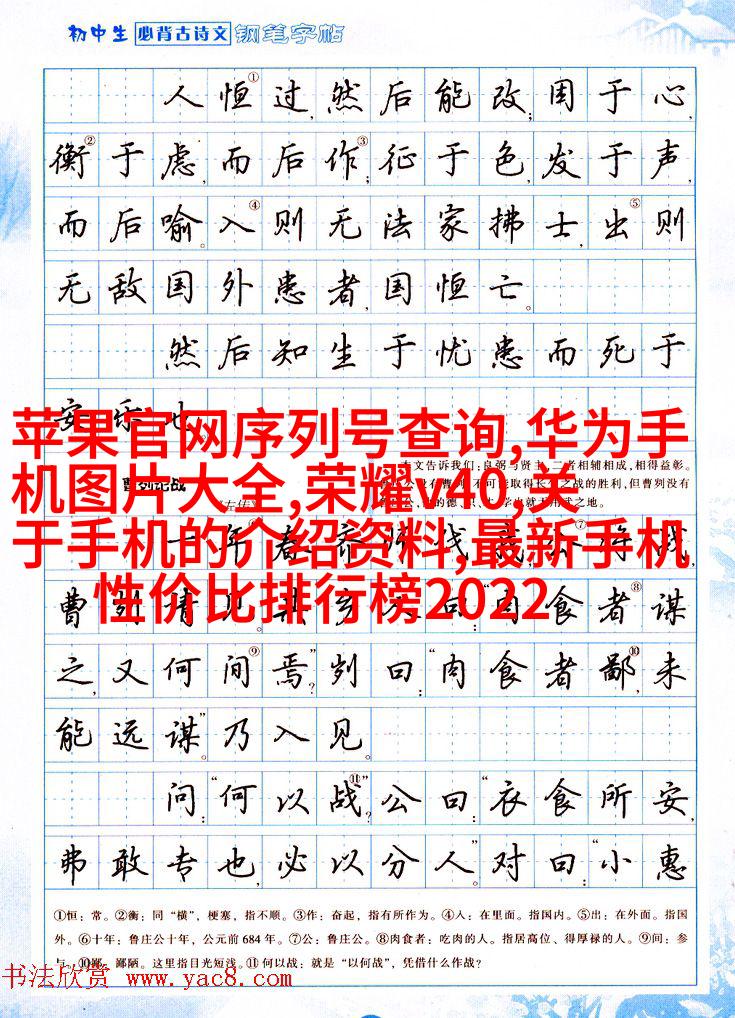 初中生 必背古诗文 钢笔字帖
人恒①过,然后能改;困于心,
衡②于虑,而后作③;征于色,发于声,
而后喻。入④则无法家拂士,出⑤则
无敌国外患者,国恒亡。
然后知生于忧患而死于
安乐也
苹果官网序列号查询,华为手
机图片大全,荣耀
40,关
于手机的介绍资料,最新手机
性价比排行榜2022
本文告诉我们:良弼与贤主,二者相辅相成,相得益彰。
曹刿论战
之,又何间⑨焉?”刿曰:“肉食者鄙⑩,未
能远谋。”乃入见。
问:“何以战⑪?”公曰:“衣食所安,
弗敢专也,必以分人。”对曰:“小惠
①恒:常。②衡:同“横”,梗塞,指不顺。③作:奋起,指有所作为。④入:在里面。指国内。⑤出:在外面。指国
外。⑥十年:鲁庄公十年,公元前684年。⑦公:鲁庄公。⑧肉食者:吃肉的人。指居高位、得厚禄的人。⑨间:参
与。⑩鄙:鄙陋。这里指目光短浅。⑪何以战:就是“以何战”,凭借什么作战?
书法欣赏 www.yac8.com